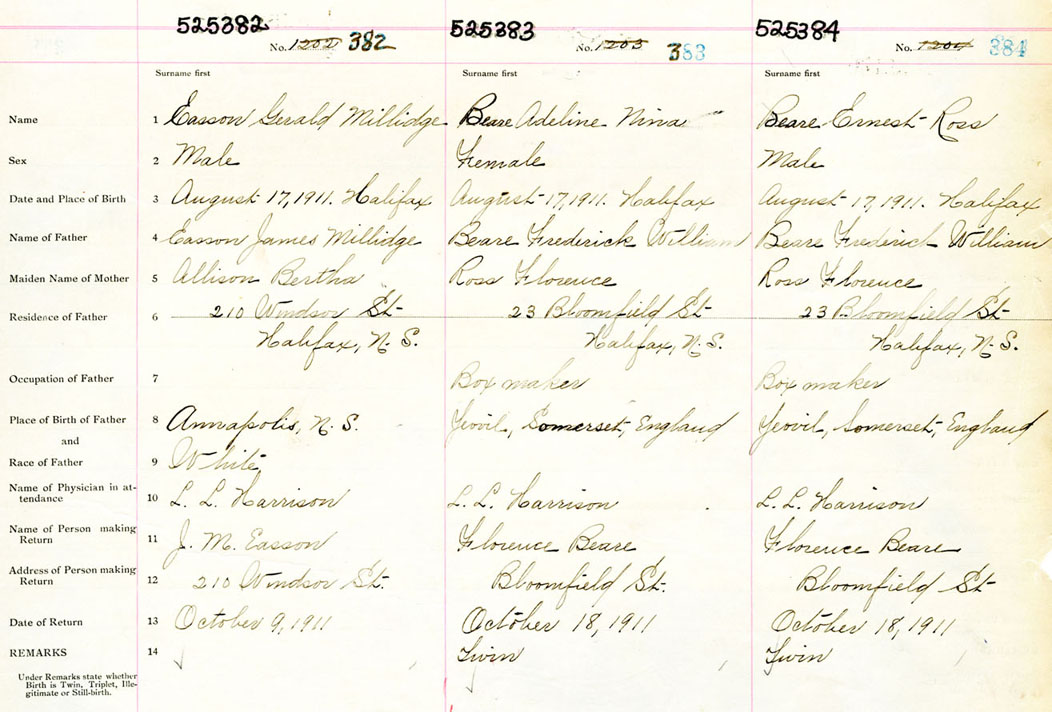 525382 525383 525384
No. 1202 382 No. 1203 383 No. 1204 384
Surname first Surname first Surname first
Name 1 Easson Gerald Millidge Beare Adeline Nina Beare Ernest Ross
Sex 2 Male Female Male
Date and Place of Birth 3 August 17, 1911. Halifax August 17, 1911. Halifax August 17, 1911. Halifax
Name of Father 4 Easson James Millidge Beare Frederick William Beare Frederick William
Maiden Name of Mother 5 Allison Bertha Ross Florence Ross Florence
Residence of Father 6 210 Windsor St 23 Bloomfield St 23 Bloomfield St
Halifax, N.S. Halifax, N.S. Halifax, N.S.
Occupation of Father 7 Box maker Box maker
Place of Birth of Father 8 Annapolis, N.S. Yeovil, Somerset, England Yeovil, Somerset, England
and
Race of Father 9 White
Name of Physician in at-
tendance 10 L. L. Harrison L. L. Harrison L. L. Harrison
Name of Person making
Return 11 J. M. Easson Florence Beare Florence Beare
Address of Person making
Return 12 210 Windsor St. Bloomfield St. Bloomfield St
Date of Return 13 October 9, 1911 October 18, 1911 October 18, 1911
REMARKS 14 Twin Twin
Under Remarks state whether
Birth is Twin, Triplet, Ille-
gitimate or Still-birth.